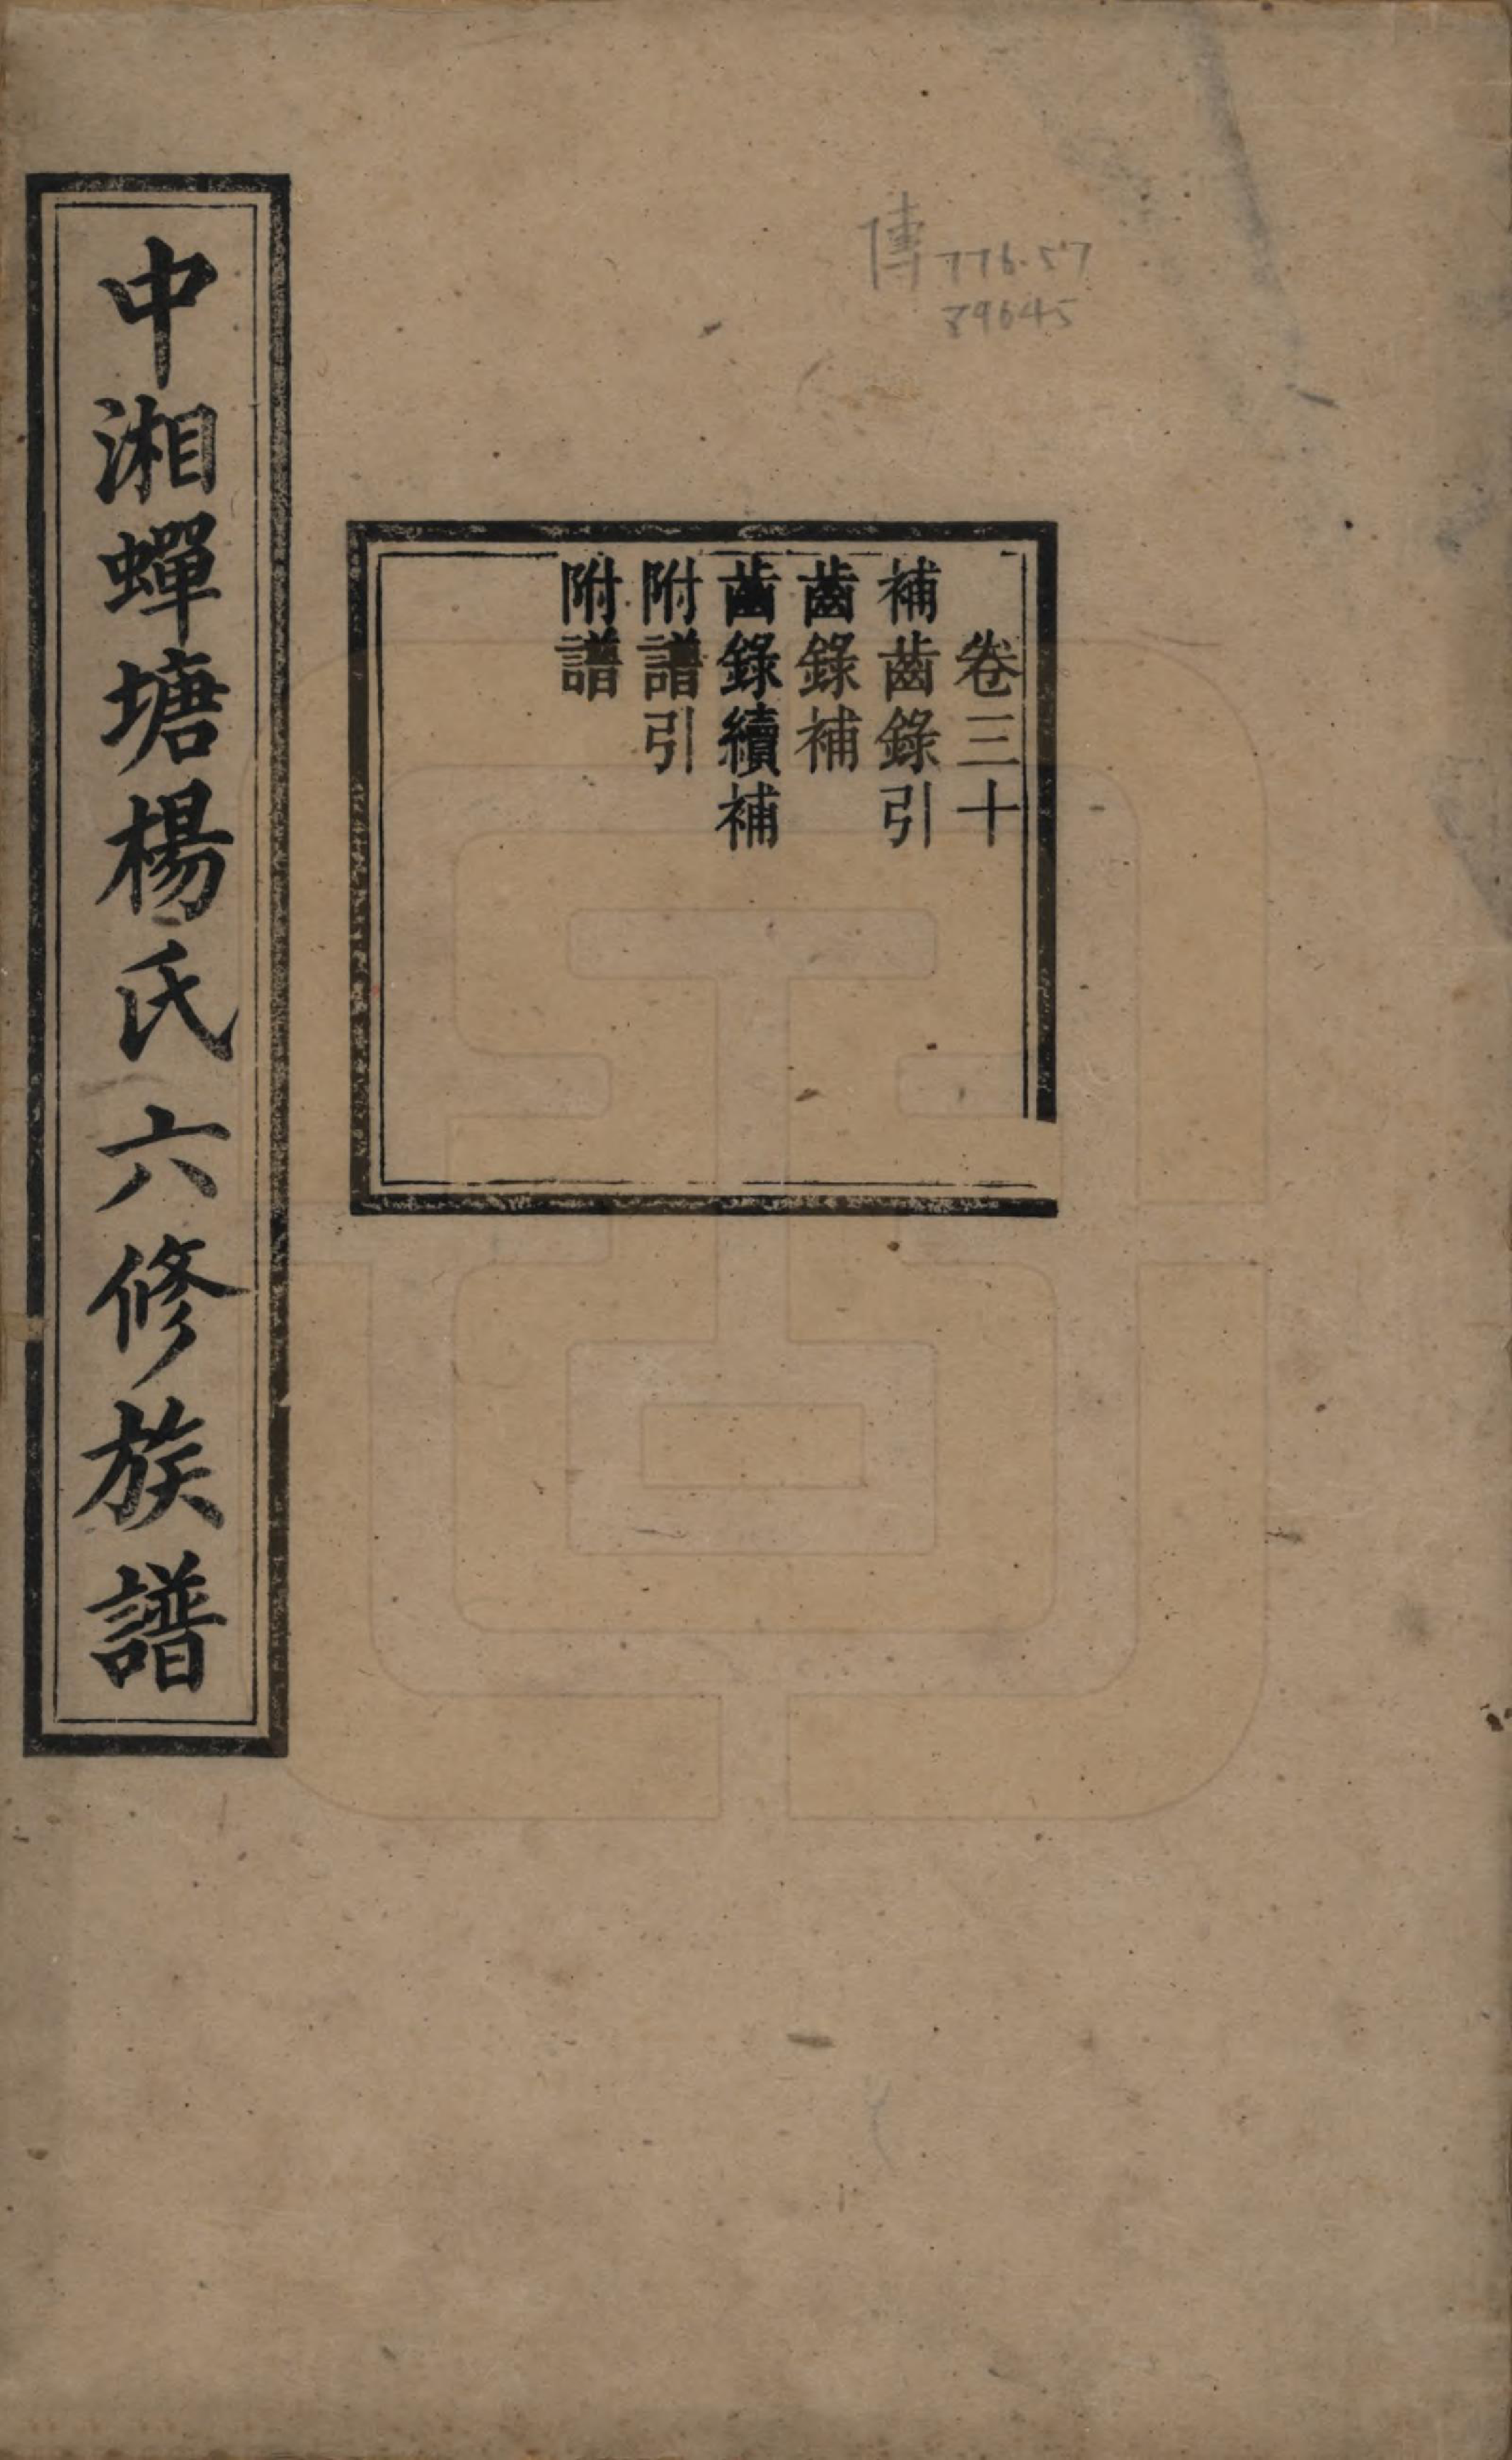 傳 776.57
89645
卷三十
補齒錄引
齒錄補
齒錄續補
附譜引
附譜
中湘蟬塘楊氏六修族譜